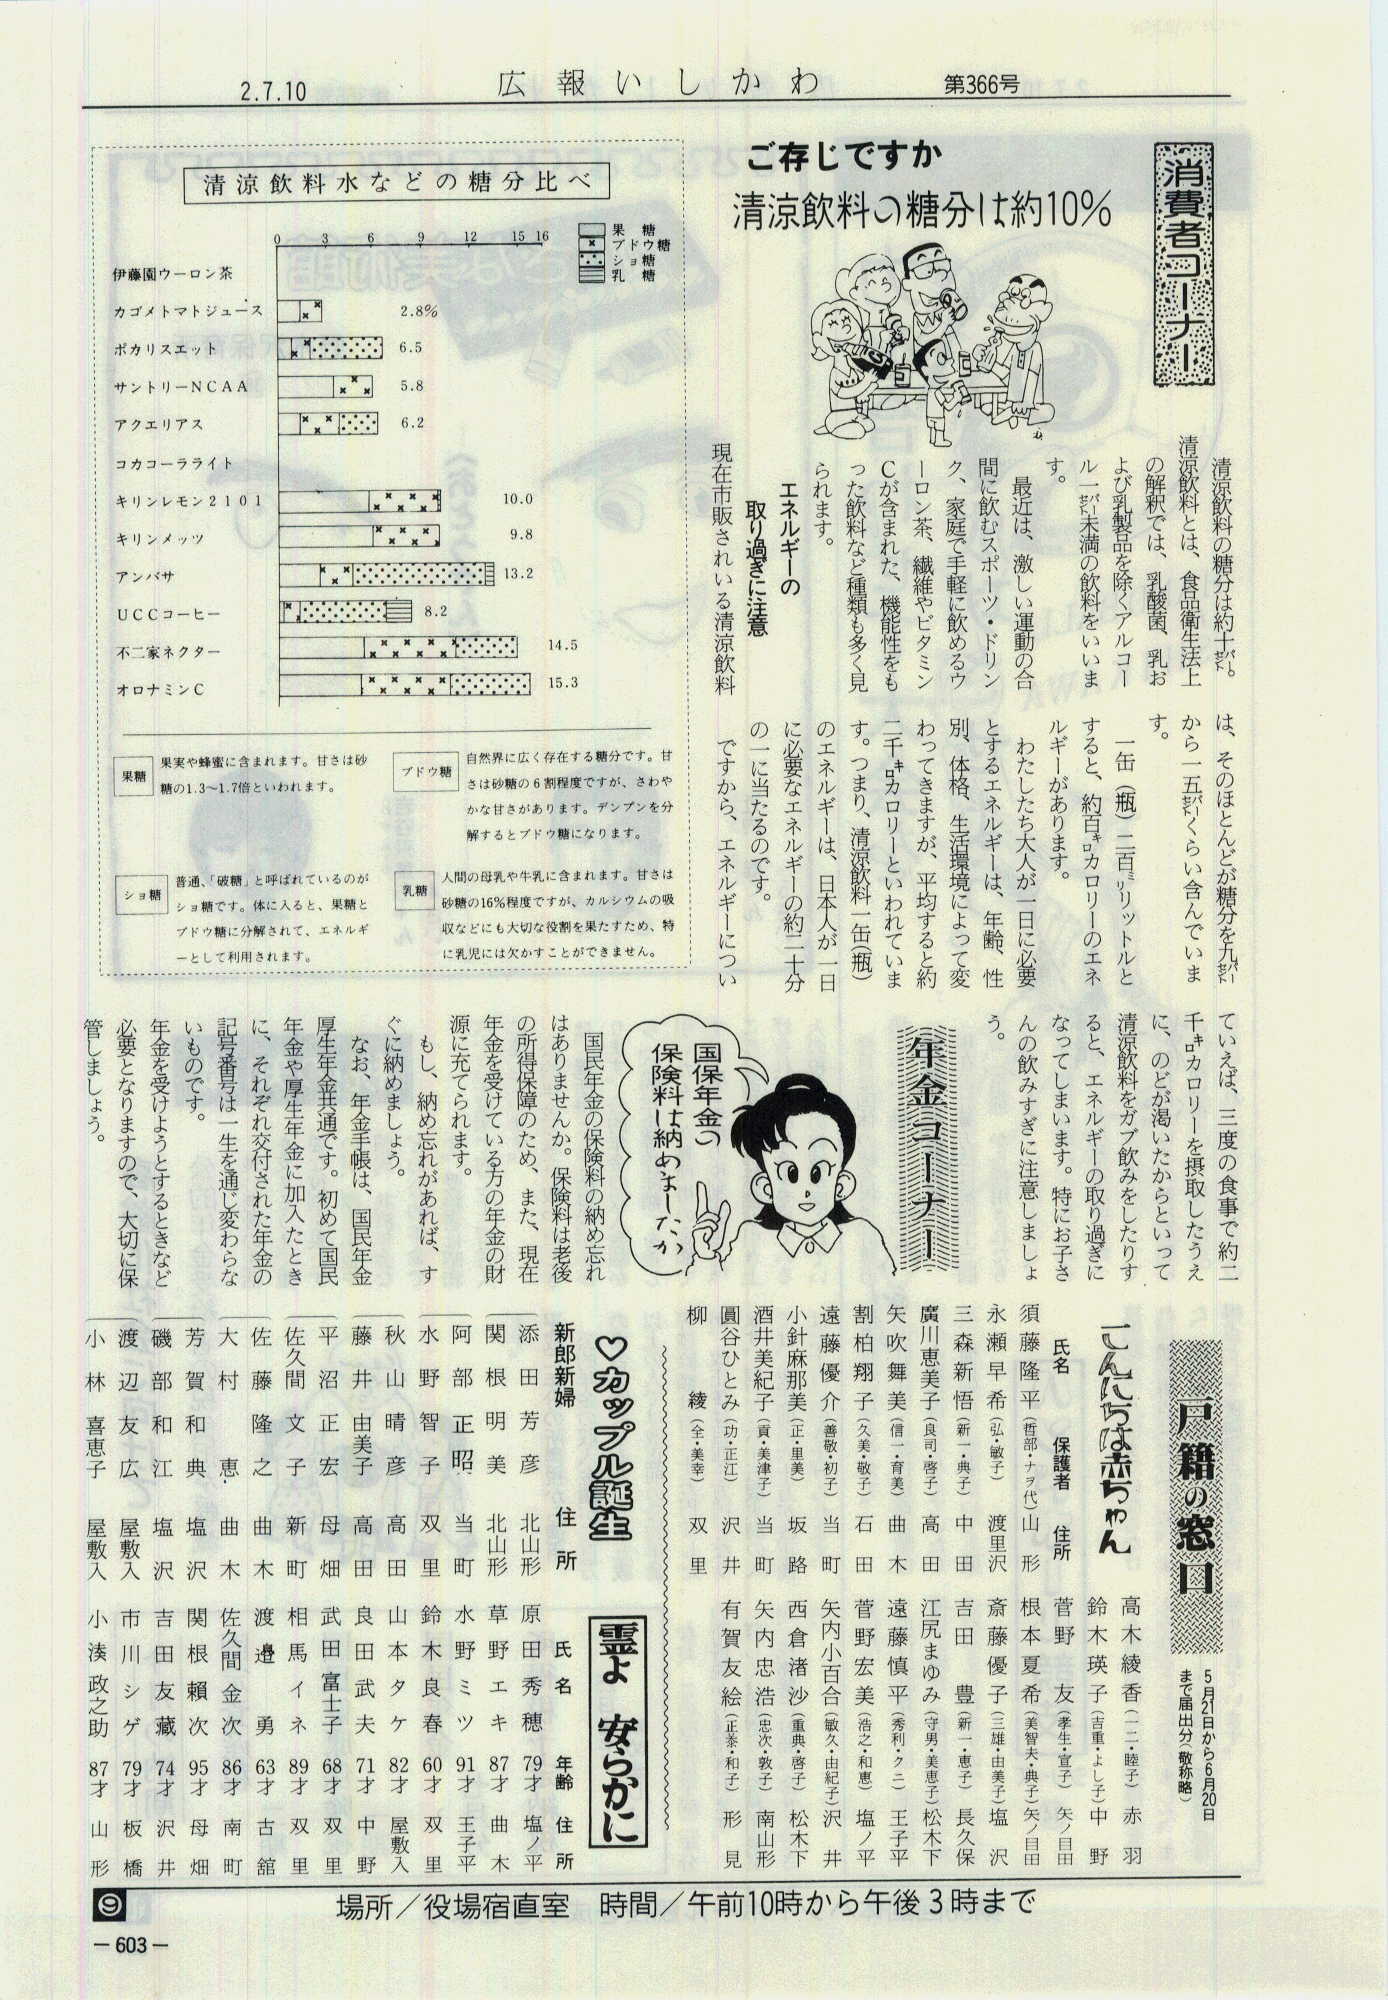 2.7.10
広報いしかわ
第366号
消費者コーナー
ご存じですか
清涼飲料の糖分は約10%
清涼飲料の糖分は約十パーセント。
清涼飲料とは、食品衛生法上
の解釈では、乳酸菌、乳お
よび乳製品を除くアルコー
ル一パーセント未満の飲料をいいま
す。
最近は、激しい運動の合
間に飲むスポーツ・ドリン
ク、家庭で手軽に飲めるウ
ーロン茶、繊維やビタミン
Cが含まれた、機能性をも
った飲料など種類も多く見
られます。
エネルギーの
取り過ぎに注意
現在市販されいる清涼飲料
は、そのほとんどが糖分を九パーセント
から一五パーセントくらい含んでいま
す。
一缶(瓶)二百ミリリットルと
すると、約百キロカロリーのエネ
ルギーがあります。
わたしたち大人が一日に必要
とするエネルギーは、年齢、性
別、体格、生活環境によって変
わってきますが、平均すると約
二千キロカロリーといわれていま
す。つまり、清涼飲料一缶(瓶)
のエネルギーは、日本人が一日
に必要なエネルギーの約二十分
の一に当たるのです。
ですから、エネルギーについ
ていえば、三度の食事で約二
千キロカロリーを摂取したうえ
に、のどが渇いたからといって
清涼飲料をガブ飲みをしたりす
ると、エネルギーの取り過ぎに
なってしまいます。特にお子さ
んの飲みすぎに注意しましょ
う。
清涼飲料水などの糖分比べ
0 3 6 9 12 15 16
果糖
ブドウ糖
ショ糖
乳糖
伊藤園ウーロン茶
カゴメトマトジュース 2.8%
ポカリスエット 6.5
サントリーNCAA 5.8
アクエリアス 6.2
コカコーラライト
キリンレモン2101 10.0
キリンメッツ 9.8
アンバサ 13.2
UCCコーヒー 8.2
不二家ネクター 14.5
オロナミンC 15.3
果糖
果実や蜂蜜に含まれます。甘さは砂
糖の1.3〜1.7倍といわれます。
ブドウ糖
自然界に広く存在する糖分です。甘
さは砂糖の6割程度ですが、さわや
かな甘さがあります。デンプンを分
解するとブドウ糖になります。
ショ糖
普通、「破糖」と呼ばれているのが
ショ糖です。体に入ると、果糖と
ブドウ糖に分解されて、エネルギ
ーとして利用されます。
乳糖
人間の母乳や牛乳に含まれます。甘さは
砂糖の16%程度ですが、カルシウムの吸
収などにも大切な役割を果たすため、特
に乳児には欠かすことができません。
年金コーナー
国保年金の
保険料は納めましたか
国民年金の保険料の納め忘れ
はありませんか。保険料は老後
の所得保障のため、また、現在
年金を受けている方の年金の財
源に充てられます。
もし、納め忘れがあれば、す
ぐに納めましょう。
なお、年金手帳は、国民年金
厚生年金共通です。初めて国民
年金や厚生年金に加入たとき
に、それぞれ交付された年金の
記号番号は一生を通じ変わらな
いものです。
年金を受けようとするときなど
必要となりますので、大切に保
管しましょう。
戸籍の窓口
5月21日から6月20日
まで届出分(敬称略)
こんにちは赤ちゃん
氏名 保護者 住所
須藤隆平(哲部・ナヲ代)山形
永瀬早希(弘・敏子)渡里沢
三森新悟(新一・典子)中田
廣川恵美子(良司・啓子)高田
矢吹舞美(信一・育美)曲木
割柏翔子(久美・敬子)石田
遠藤優介(善敬・初子)当町
小針麻那美(正・里美)坂路
酒井美紀子(貢・美津子)当町
圓谷ひとみ(功・正江)沢井
柳綾(全・美幸)双里
高木綾香(一二・睦子)赤羽
鈴木瑛子(吉重・よし子)中野
菅野友(孝生・宣子)矢ノ目田
根本夏希(美智夫・典子)矢ノ目田
斎藤優子(三雄・由美子)塩沢
吉田豊(新一・恵子)長久保
江尻まゆみ(守男・美恵子)松木下
遠藤慎平(秀利・クニ)王子平
菅野宏美(浩之・和恵)塩ノ平
矢内小百合(敏久・由紀子)沢井
西倉渚沙(重典・啓子)松木下
矢内忠浩(忠次・敦子)南山形
有賀友絵(正泰・和子)形見
♡カップル誕生
新郎新婦 住所
添田芳彦 北山形
関根明美 北山形
阿部正昭 当町
水野智子 双里
秋山晴彦 高田
藤井由美子 高田
平沼正宏 母畑
佐久間文子 新町
佐藤隆之 曲木
大村恵 曲木
芳賀和典 塩沢
磯部和江 塩沢
渡辺友広 屋敷入
小林喜恵子 屋敷入
霊よ 安らかに
氏名 年齢 住所
原田秀穂 79才 塩ノ平
草野エキ 87才 曲木
水野ミツ 91才 王子平
鈴木良春 60才 双里
山本タケ 82才 屋敷入
良田武夫 71才 中野
武田富士子 68才 双里
相馬イネ 89才 双里
渡邉勇 63才 古舘
佐久間金次 86才 南町
関根賴次 95才 母畑
吉田友藏 74才 沢井
市川シゲ 79才 板橋
小湊政之助 87才 山形
場所/役場宿直室 時間/午前10時から午後3時まで
⑨
—603—